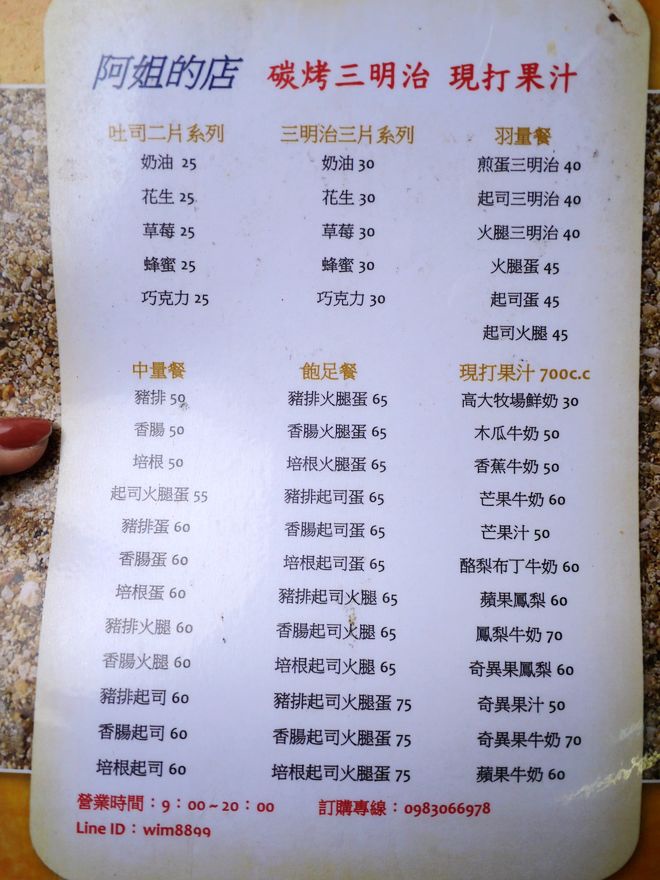 阿姐的店 碳烤三明治 現打果汁
吐司二片系列
奶油 25
花生 25
草莓 25
蜂蜜 25
巧克力 25
三明治三片系列
奶油 30
花生 30
草莓 30
蜂蜜 30
巧克力 30
羽量餐
煎蛋三明治 40
起司三明治 40
火腿三明治 40
火腿蛋 45
起司蛋 45
起司火腿 45
中量餐
豬排 50
香腸 50
培根 50
起司火腿蛋 55
豬排蛋 60
香腸蛋 60
培根蛋 60
豬排火腿 60
香腸火腿 60
豬排起司 60
香腸起司 60
培根起司 60
飽足餐
豬排火腿蛋 65
香腸火腿蛋 65
培根火腿蛋 65
豬排起司蛋 65
香腸起司蛋 65
培根起司蛋 65
豬排起司火腿 65
香腸起司火腿 65
培根起司火腿 65
豬排起司火腿蛋 75
香腸起司火腿蛋 75
培根起司火腿蛋 75
現打果汁 700c.c
高大牧場鮮奶 30
木瓜牛奶 50
香蕉牛奶 50
芒果牛奶 60
芒果汁 50
酪梨布丁牛奶 60
蘋果鳳梨 60
鳳梨牛奶 70
奇異果鳳梨 60
奇異果汁 50
奇異果牛奶 70
蘋果牛奶 60
營業時間：9：00~20：00 訂購專線：0983066978
Line ID：wim8899